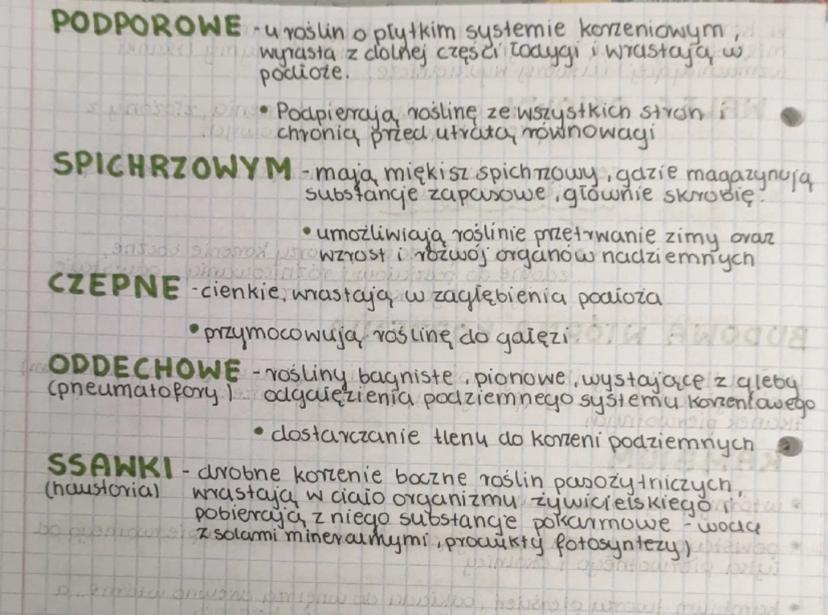 PODPOROWE - u roślin o płytkim systemie korzeniowym,
wyrasta z dolnej części łodygi i wrastają w
podłoże.
• Podpierają roślinę ze wszystkich stron i
chronią przed utratą równowagi
SPICHRZOWYM - mają miękisz spichrzowy, gdzie magazynują
substancje zapasowe, głównie skrobię.
• umożliwiają roślinie przetrwanie zimy oraz
wzrost i rozwój organów nadziemnych
CZEPNE - cienkie, wrastają w zagłębienia podłoża
• przymocowują roślinę do gałęzi
ODDECHOWE - rośliny bagniste, pionowe, wystające z gleby
(pneumatofory) odgałęzienia podziemnego systemu korzeniowego
• dostarczanie tlenu do korzeni podziemnych
SSAWKI - drobne korzenie boczne roślin pasożytniczych,
(haustoria) wrastają w ciało organizmu żywicielskiego i
pobierają z niego substancje pokarmowe - wodę
z solami mineralnymi, produkty fotosyntezy)